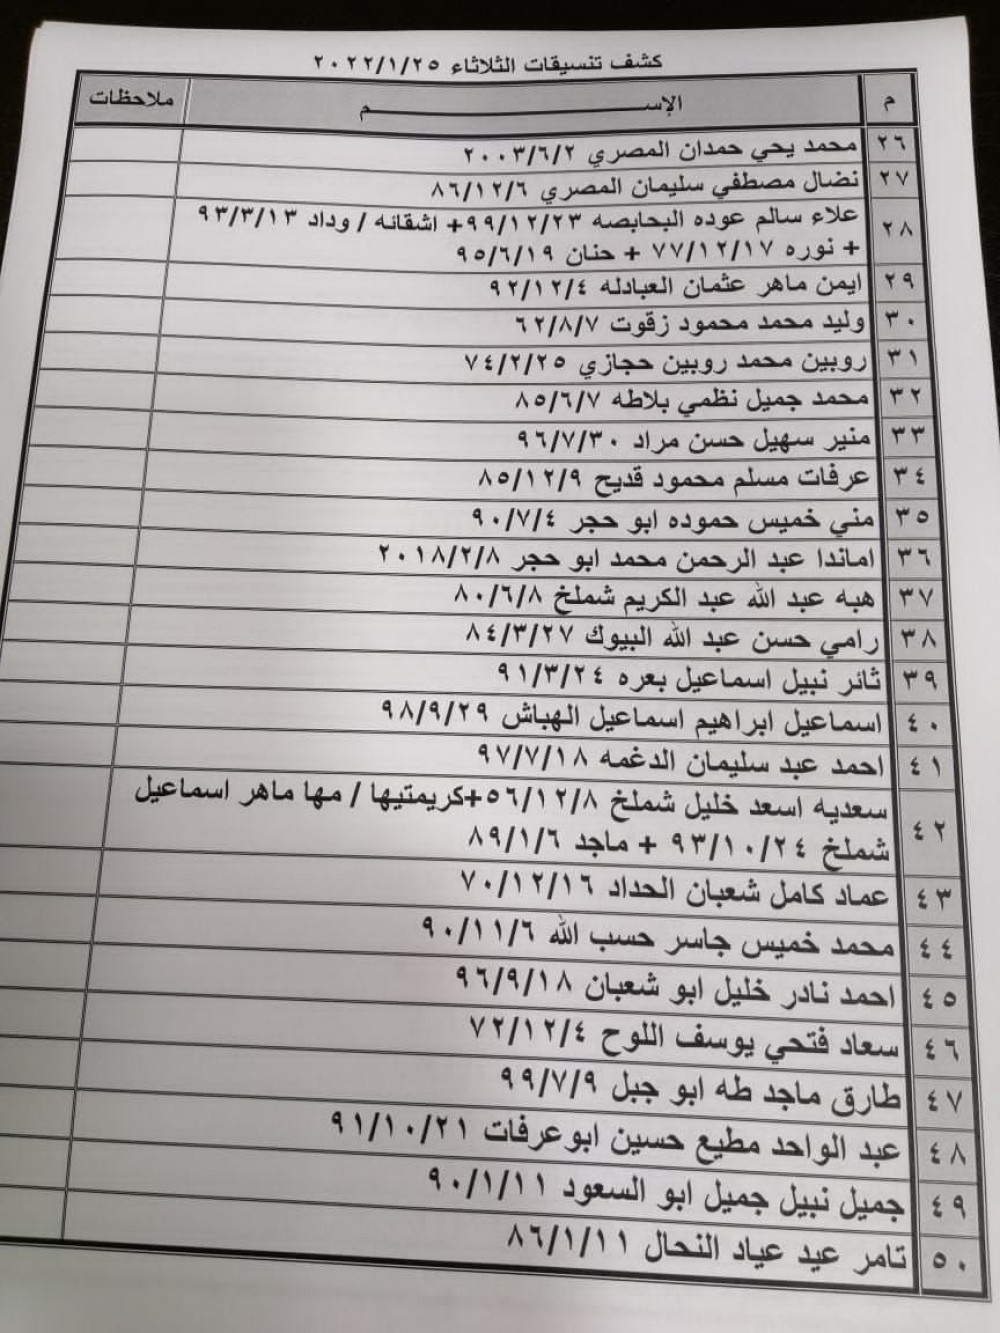 كشف تنسيقات الثلاثاء ٢٠٢٢/١/٢٥
م الإســـــــــم ملاحظات
٢٦ محمد يحي حمدان المصري ٢٠٠٣/٦/٢
٢٧ نضال مصطفي سليمان المصري ٨٦/١٢/٦
٢٨ علاء سالم عوده البحابصه ٩٩/١٢/٢٣+ اشقائه / وداد ٩٣/٣/١٣
+ نوره ٧٧/١٢/١٧ + حنان ٩٥/٦/١٩
٢٩ ايمن ماهر عثمان العبادله ٩٢/١٢/٤
٣٠ وليد محمد محمود زقوت ٦٢/٨/٧
٣١ روبين محمد روبين حجازي ٧٤/٢/٢٥
٣٢ محمد جميل نظمي بلاطه ٨٥/٦/٧
٣٣ منير سهيل حسن مراد ٩٦/٧/٣٠
٣٤ عرفات مسلم محمود قديح ٨٥/١٢/٩
٣٥ مني خميس حموده ابو حجر ٩٠/٧/٤
٣٦ اماندا عبد الرحمن محمد ابو حجر ٢٠١٨/٢/٨
٣٧ هبه عبد الله عبد الكريم شملخ ٨٠/٦/٨
٣٨ رامي حسن عبد الله البيوك ٨٤/٣/٢٧
٣٩ ثائر نبيل اسماعيل بعره ٩١/٣/٢٤
٤٠ اسماعيل ابراهيم اسماعيل الهباش ٩٨/٩/٢٩
٤١ احمد عبد سليمان الدغمه ٩٧/٧/١٨
٤٢ سعديه اسعد خليل شملخ ٥٦/١٢/٨+كريمتيها / مها ماهر اسماعيل
شملخ ٩٣/١٠/٢٤ + ماجد ٨٩/١/٦
٤٣ عماد كامل شعبان الحداد ٧٠/١٢/١٦
٤٤ محمد خميس جاسر حسب الله ٩٠/١١/٦
٤٥ احمد نادر خليل ابو شعبان ٩٦/٩/١٨
٤٦ سعاد فتحي يوسف اللوح ٧٢/١٢/٤
٤٧ طارق ماجد طه ابو جبل ٩٩/٧/٩
٤٨ عبد الواحد مطيع حسين ابوعرفات ٩١/١٠/٢١
٤٩ جميل نبيل جميل ابو السعود ٩٠/١/١١
٥٠ تامر عيد عياد النحال ٨٦/١/١١